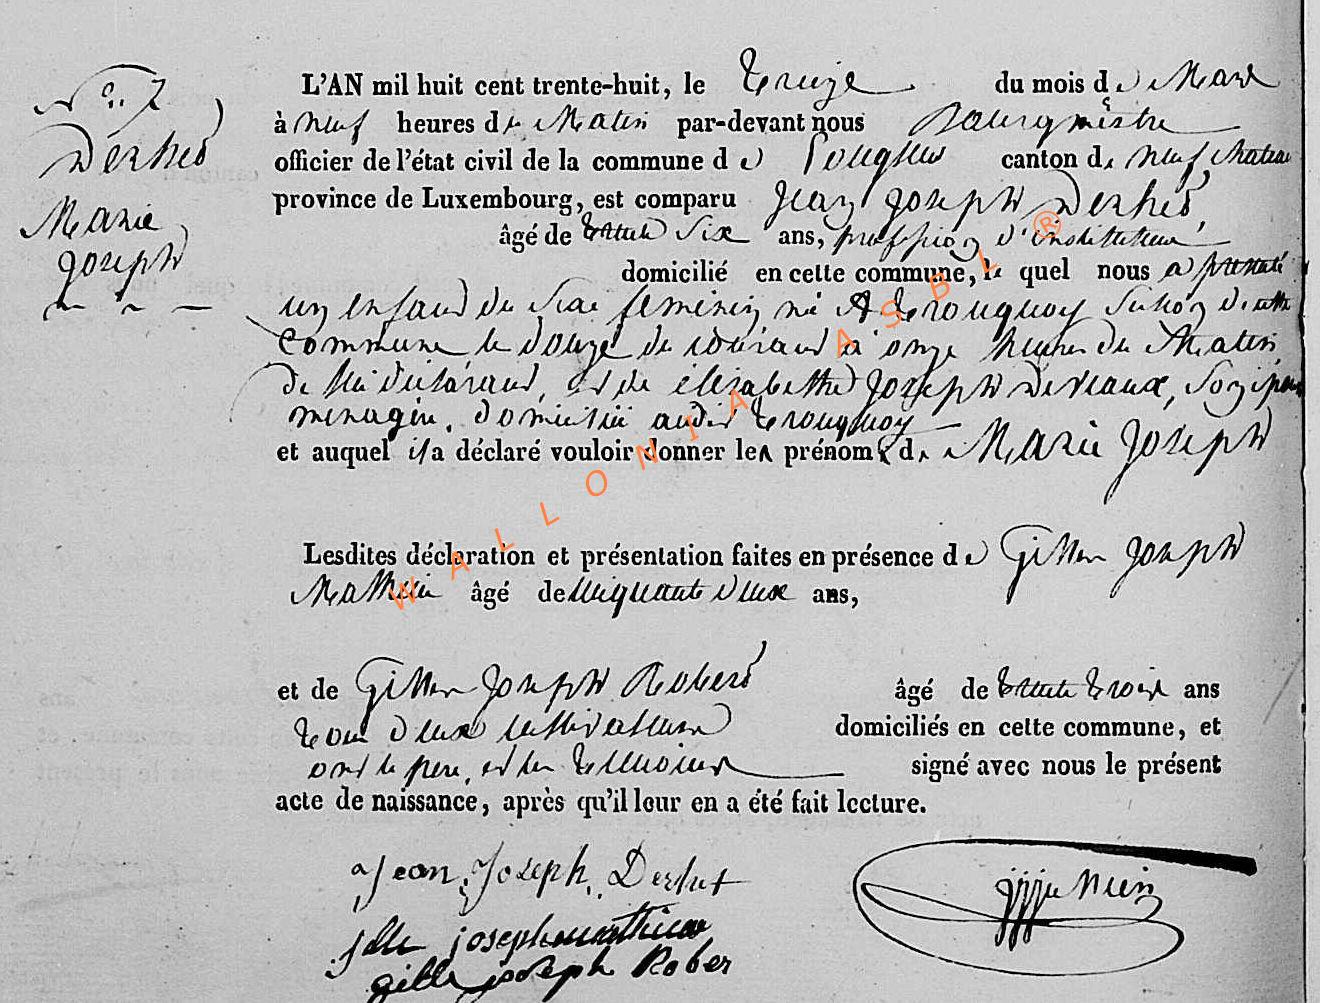 N° 7
Derhet
Marie
Joseph
L'AN mil huit cent trente-huit, le treize du mois de Mars
à neuf heures du Matin par-devant nous Bourgmestre
officier de l'état civil de la commune de canton de neufchateau
province de Luxembourg, est comparu Jean Joseph Derhet,
âgé de trente Six ans, profession d'instituteur
domicilié en cette commune, le quel nous a présenté
un enfant du Sexe feminin né A tronquoy Section de cette
Commune le douze du courant à onze heures du Matin,
de lui déclarant, et de élisabethe Joseph deveaux, Son epouse
menagère, domicilié audit tronquoy
et auquel il a déclaré vouloir donner les prénoms de Marie Joseph
Lesdites déclaration et présentation faites en présence de Gilles Joseph
Mathieu âgé de cinquante deux ans,
et de Gilles Joseph Robert âgé de trente trois ans
tous deux cultivateurs domiciliés en cette commune, et
ont le père, et les témoins signé avec nous le présent
acte de naissance, après qu'il leur en a été fait lecture.
Jean Joseph Derhet
joseph mathieu
gille joseph Rober
WALLONIA ASBL ®